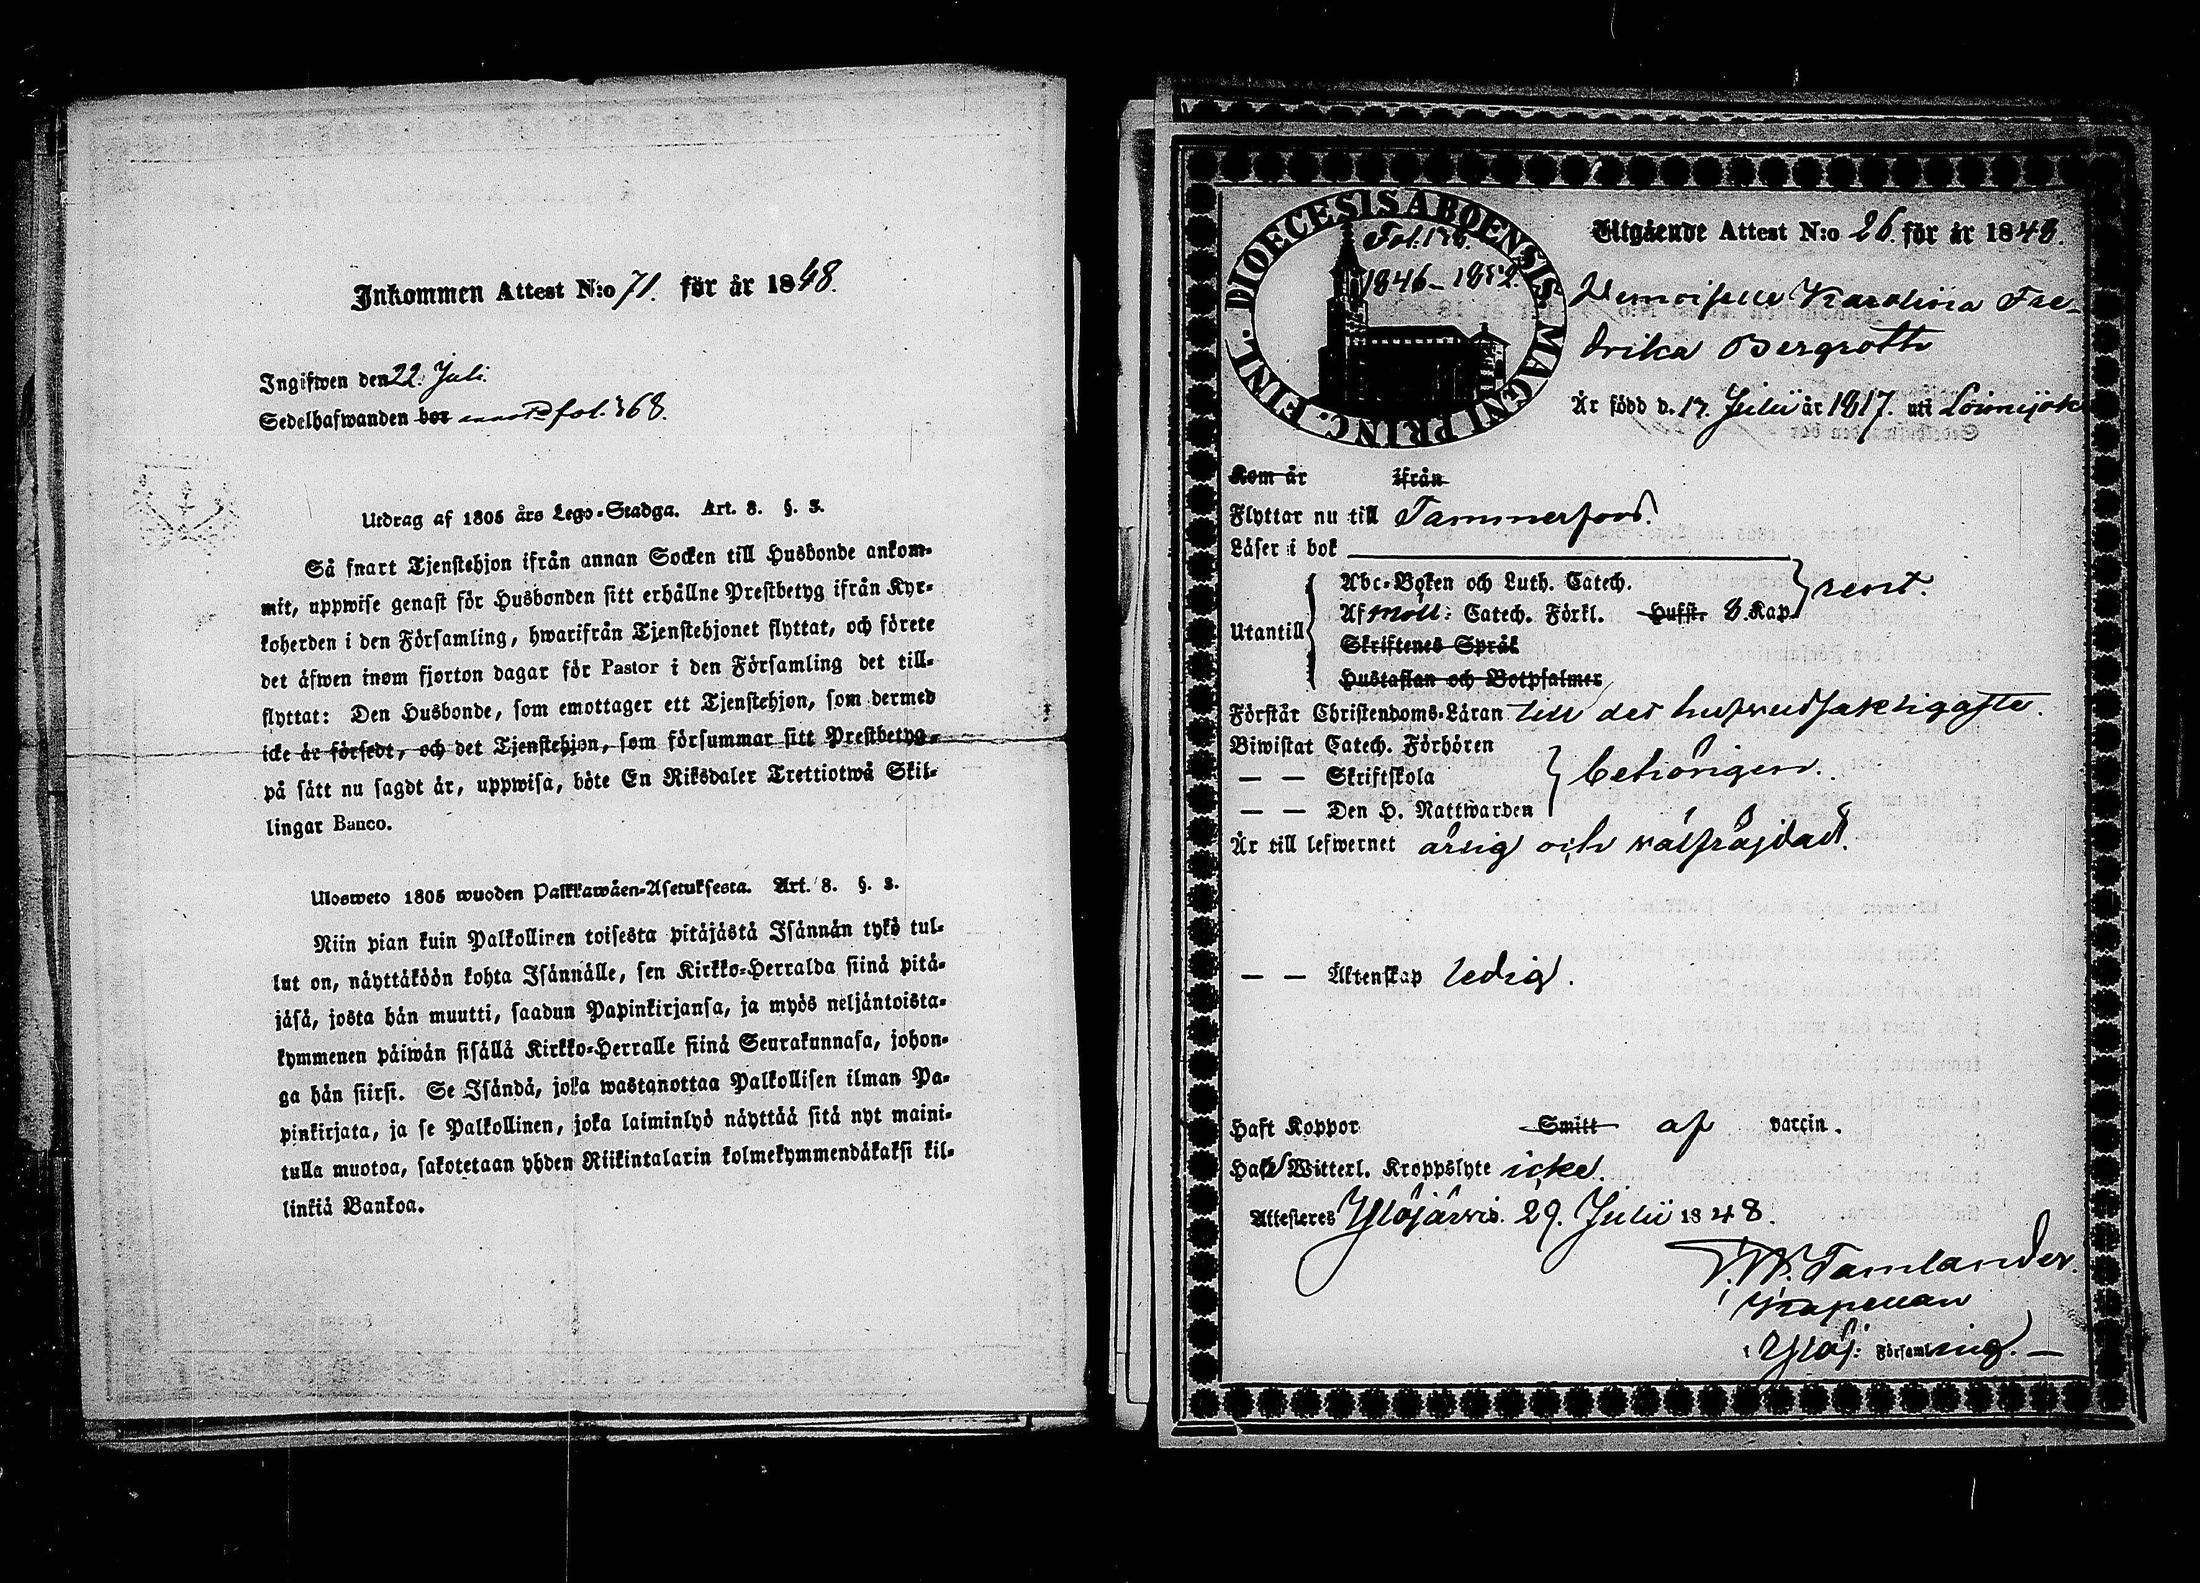 Inkommen Attest N:o 71. för år 1848.
Ingifwen den 22. Juli.
Sedelhafwanden bor fol. 368.
Utdrag af 1805 års Lego-Stadga. Art. 8. §. 3.
Så snart Tjenstehjon ifrån annan Socken till Husbonde ankom-
mit, uppwise genast för Husbonden sitt erhållne Prestbetyg ifrån Kyr-
koherden i den Församling, hwarifrån Tjenstehjonet flyttat, och förete
det äfwen inom fjorton dagar för Pastor i den Församling det till-
flyttat: Den Husbonde, som emottager ett Tjenstehjon, som dermed
icke är försedt, och det Tjenstehjon, som försummar sitt Prestbetyg,
på sätt nu sagdt är, uppwisa, böte En Riksdaler Trettiotwå Skil-
lingar Banco.
Ulosweto 1805 wuoden Palkkawäen-Asetuksesta. Art. 8. §. 3.
Niin pian kuin Palkollinen toisesta pitäjästä Isännän tykö tul-
lut on, näyttäköön kohta Isännälle, sen Kirkko-Herralda siinä pitä-
jäsä, josta hän muutti, saadun Papinkirjansa, ja myös neljäntoista-
kymmenen päiwän sisällä Kirkko-Herralle siinä Seurakunnasa, johon-
ga hän siirsi. Se Isändä, joka wastanottaa Palkollisen ilman Pa-
pinkirjata, ja se Palkollinen, joka laiminlyö näyttää sitä nyt maini-
tulla muotoa, sakotetaan yhden Riikintalarin kolmekymmendäkaksi kil-
linkiä Bankoa.
DIOECESIS ABOENSIS. MAGNI PRINC. FINL.
Fol. 176.
1846-1852.
Utgående Attest N:o 26. för år 1848.
Demoiselle Karolina Fre-
drika Bergroth
Är född d. 17. Julii år 1817. uti Loimijok
Kom år ifrån
Flyttar nu till Tammerfors.
Läser i bok
Utantill
Abc-Boken och Luth. Catech.
Af Möll: Catech. Förkl. Husst. 8. Kap. rent.
Skriftenes Språk
Hustaflan och Botpsalmer
Förstår Christendoms-Läran till det hufvudsakligaste.
Biwistat Catech. Förhören
— — Skriftskola behörigen.
— — Den H. Nattwarden
Är till lefwernet ärlig och välfräjdad.
— — Äktenskap ledig.
Haft Koppor Smitt af vaccin.
Haft Witterl. Kroppslyte icke.
Attesteres Ylöjärvis. 29. Julii 1848.
Tamlander.
Kapellan
i Ylöj: Församling. —